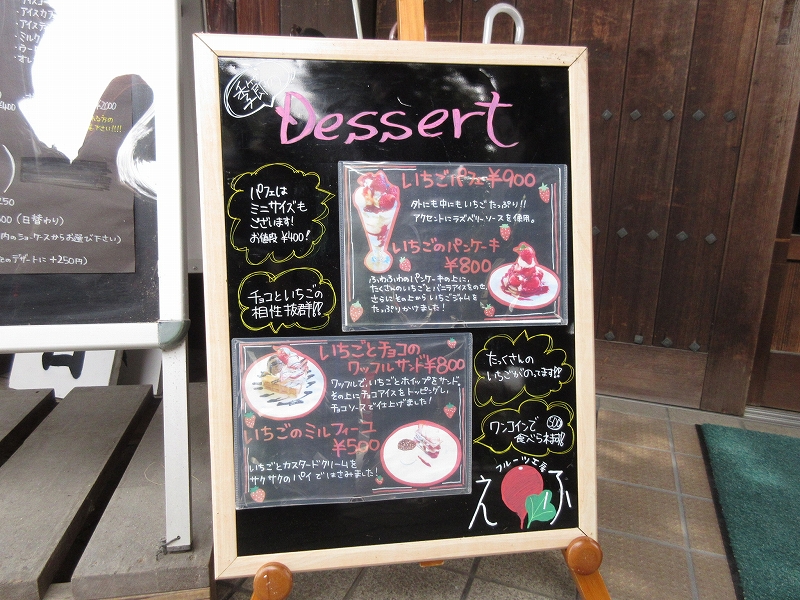 季節
Dessert
パフェは
ミニサイズも
ございます!
お値段 ¥400!
いちごパフェ ¥900
外にも中にもいちごたっぷり!!
アクセントにラズベリーソースを使用。
いちごのパンケーキ
¥800
ふわふわのパンケーキの上に、
たくさんのいちごとバニラアイスをのせ、
さらにその上からいちごジャムを
たっぷりかけました!
チョコといちごの
相性抜群!!
いちごとチョコの
ワッフルサンド¥800
ワッフルで、いちごとホイップをサンド。
その上にチョコアイスをトッピングし、
チョコソースで仕上げました!
いちごのミルフィーユ
¥500
いちごとカスタードクリームを
サクサクのパイではさみました!
たっくさんの
いちごがのってます!!
ワンコインで 500
食べられます!!
フルーツ工房
えふ
・アイスカフ
・アイスティ
・ミルク
¥2000
下さい!!!!
250
(日替わり)
内のショーケースからお選び下さい)
のデザートに +250円)